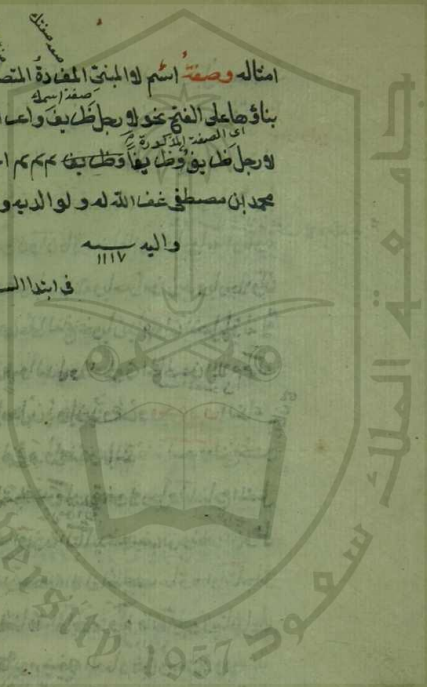 امثاله وصفة اسم لا المبنى المفردة المتص
صفة اسم لا
بناؤها على الفتح نحو لا رجل ظريف واعر
اى الصفة المذكورة
لا رجل ظريف وظريفا وظريف
محمد ابن مصطفى غفر الله له ولوالديه و
واليه
١١١٧
فى ابتدا الس
جامعة الملك سعود
1957